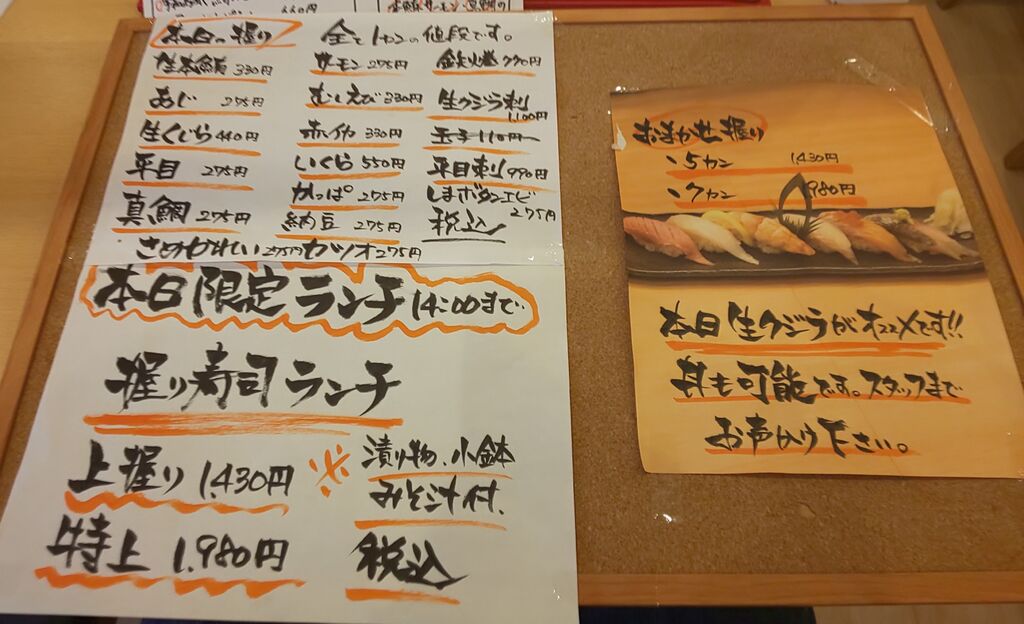 660円
本日の握り 全て1カンの値段です。
生本鮪 330円 サーモン 275円 鉄火巻 770円
あじ 275円 むしえび 330円 生クジラ刺 1,100円
生くじら 440円 赤イカ 330円 玉子 110円
平目 275円 いくら 550円 平目刺 990円
真鯛 275円 かっぱ 275円 しまボタンエビ 275円
納豆 275円 税込
さめかれい 275円 カツオ 275円
本日限定ランチ 14:00まで
握り寿司ランチ
上握り 1,430円 ※ 漬け物、小鉢
みそ汁付、
特上 1,980円 税込
おまかせ握り
、5カン 1,430円
、7カン 1,980円
本日生クジラがオススメです!!
丼も可能です。スタッフまで
お声がけ下さい。